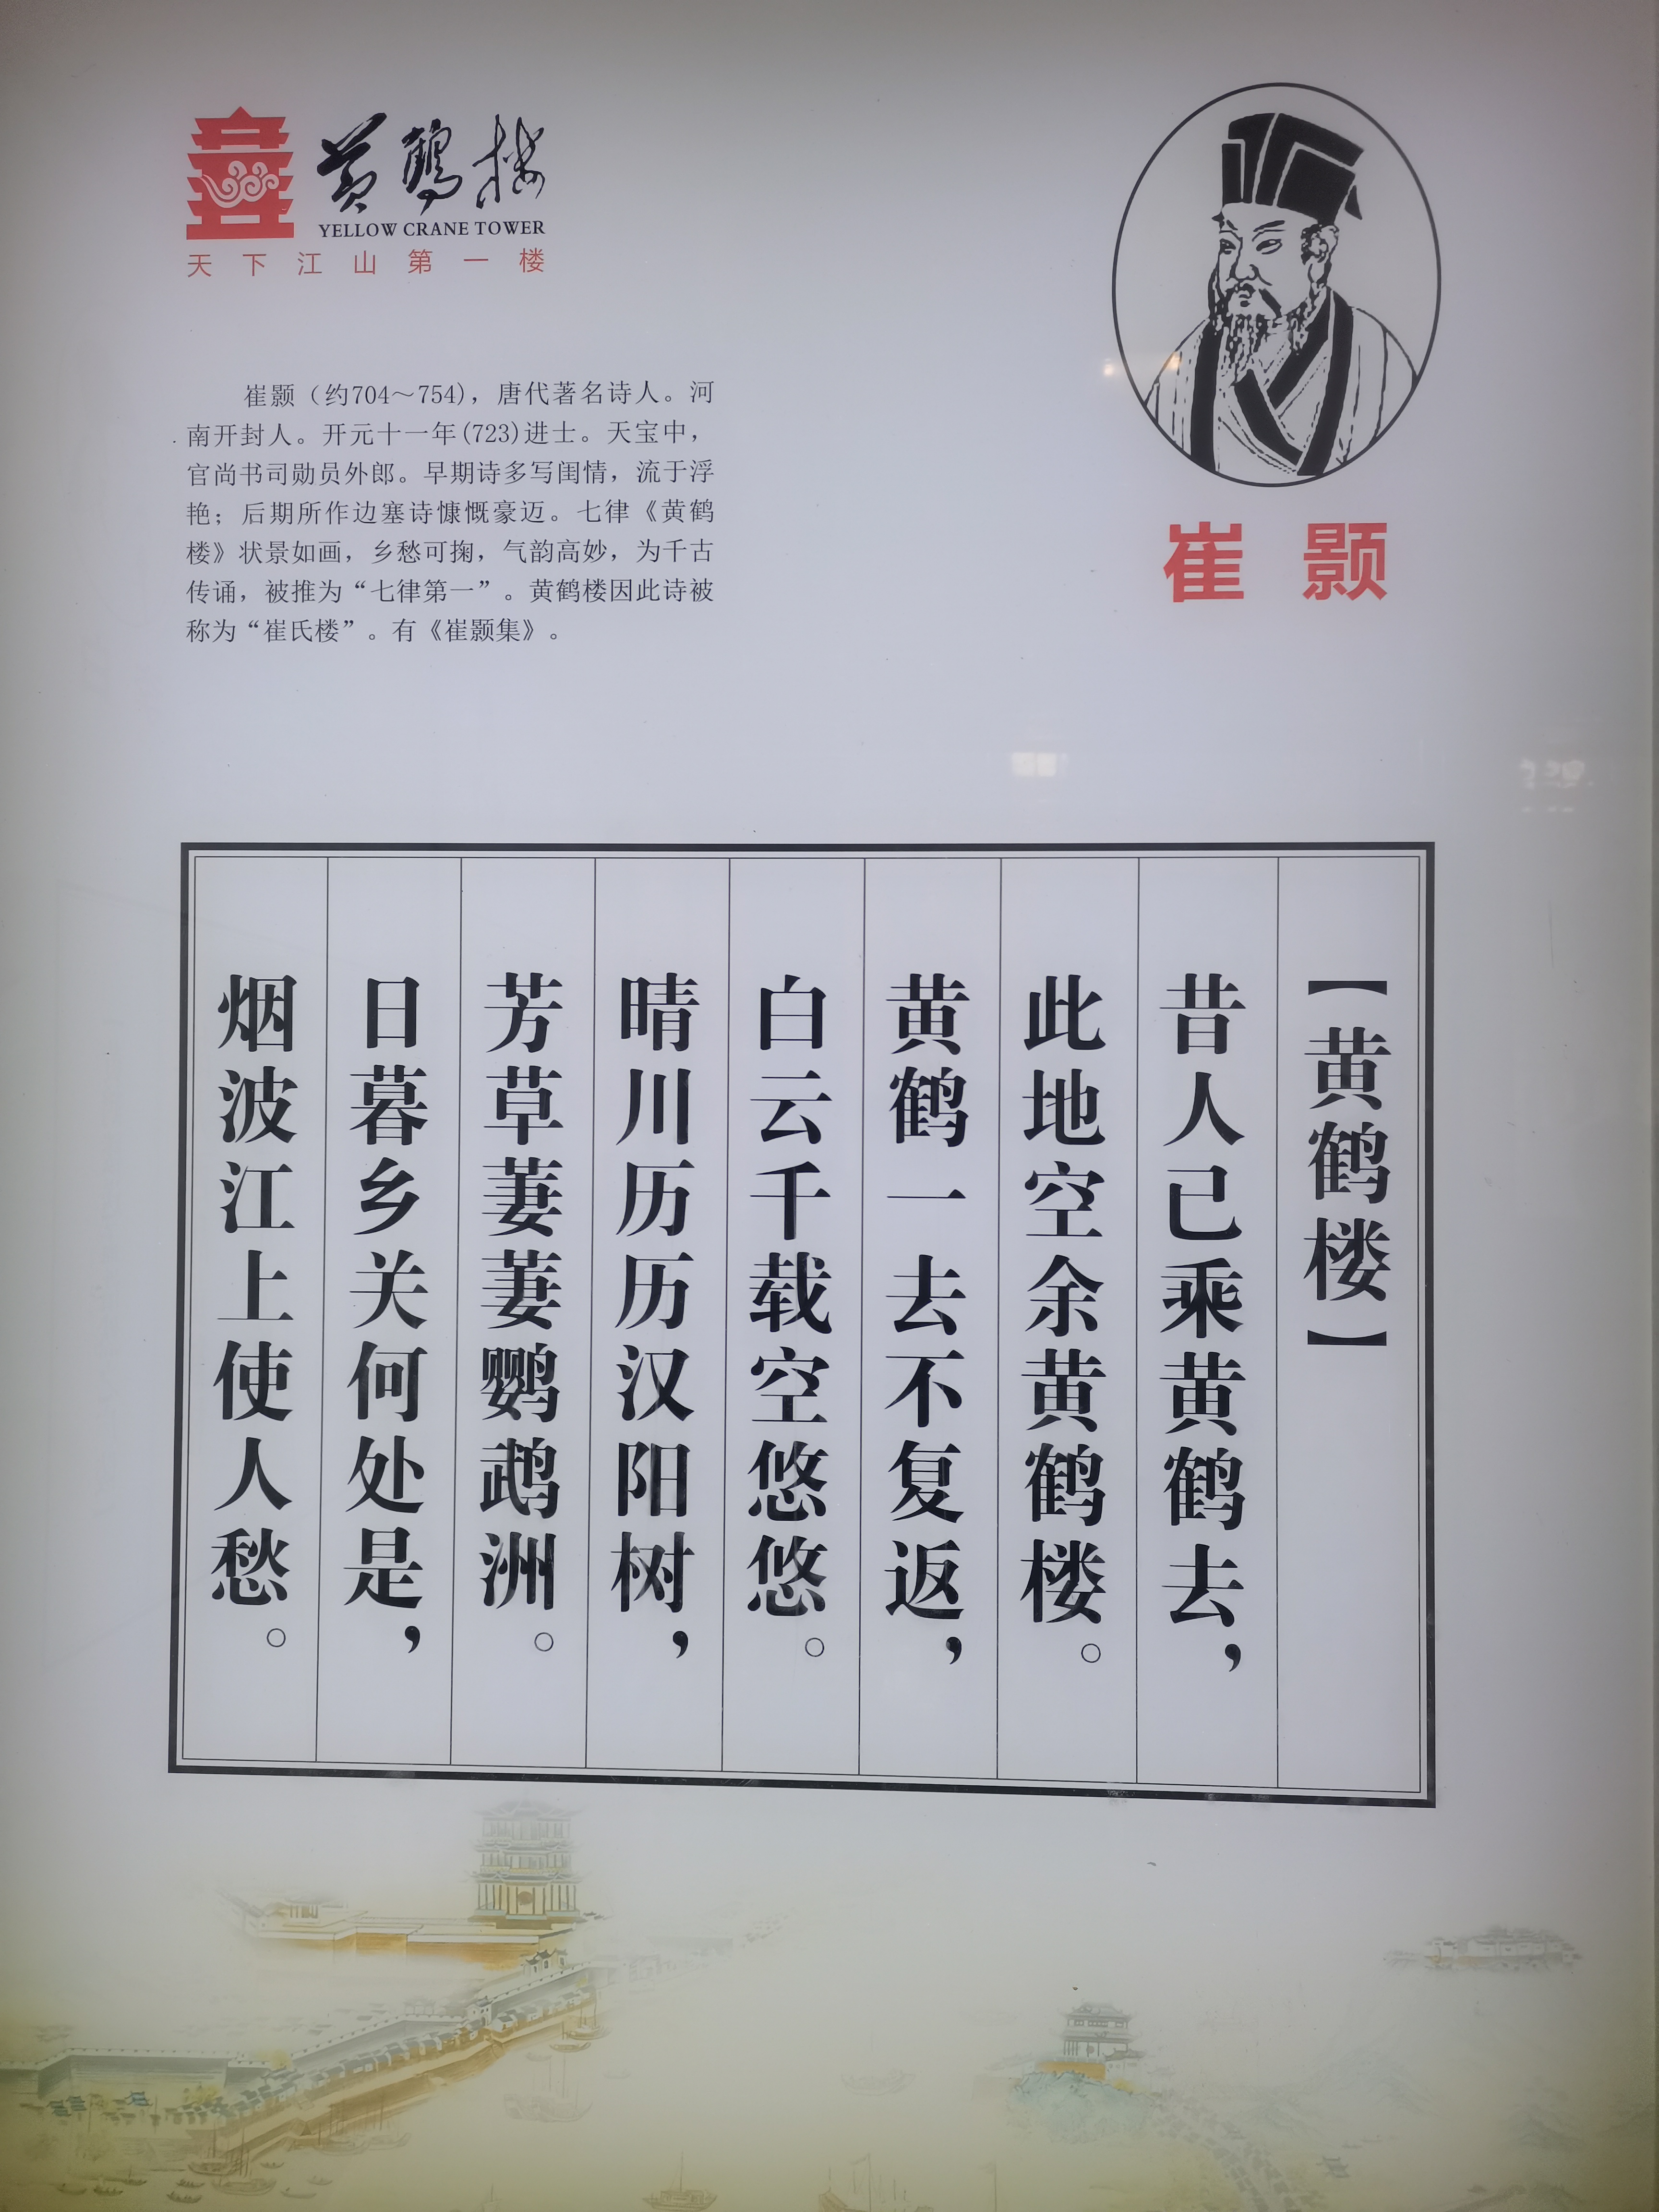 黄鹤楼
YELLOW CRANE TOWER
天下江山第一楼
崔颢（约704～754)，唐代著名诗人。河
南开封人。开元十一年(723)进士。天宝中，
官尚书司勋员外郎。早期诗多写闺情，流于浮
艳；后期所作边塞诗慷慨豪迈。七律《黄鹤
楼》状景如画，乡愁可掬，气韵高妙，为千古
传诵，被推为“七律第一”。黄鹤楼因此诗被
称为“崔氏楼”。有《崔颢集》。
崔颢
【黄鹤楼】
昔人已乘黄鹤去，
此地空余黄鹤楼。
黄鹤一去不复返，
白云千载空悠悠。
晴川历历汉阳树，
芳草萋萋鹦鹉洲。
日暮乡关何处是，
烟波江上使人愁。